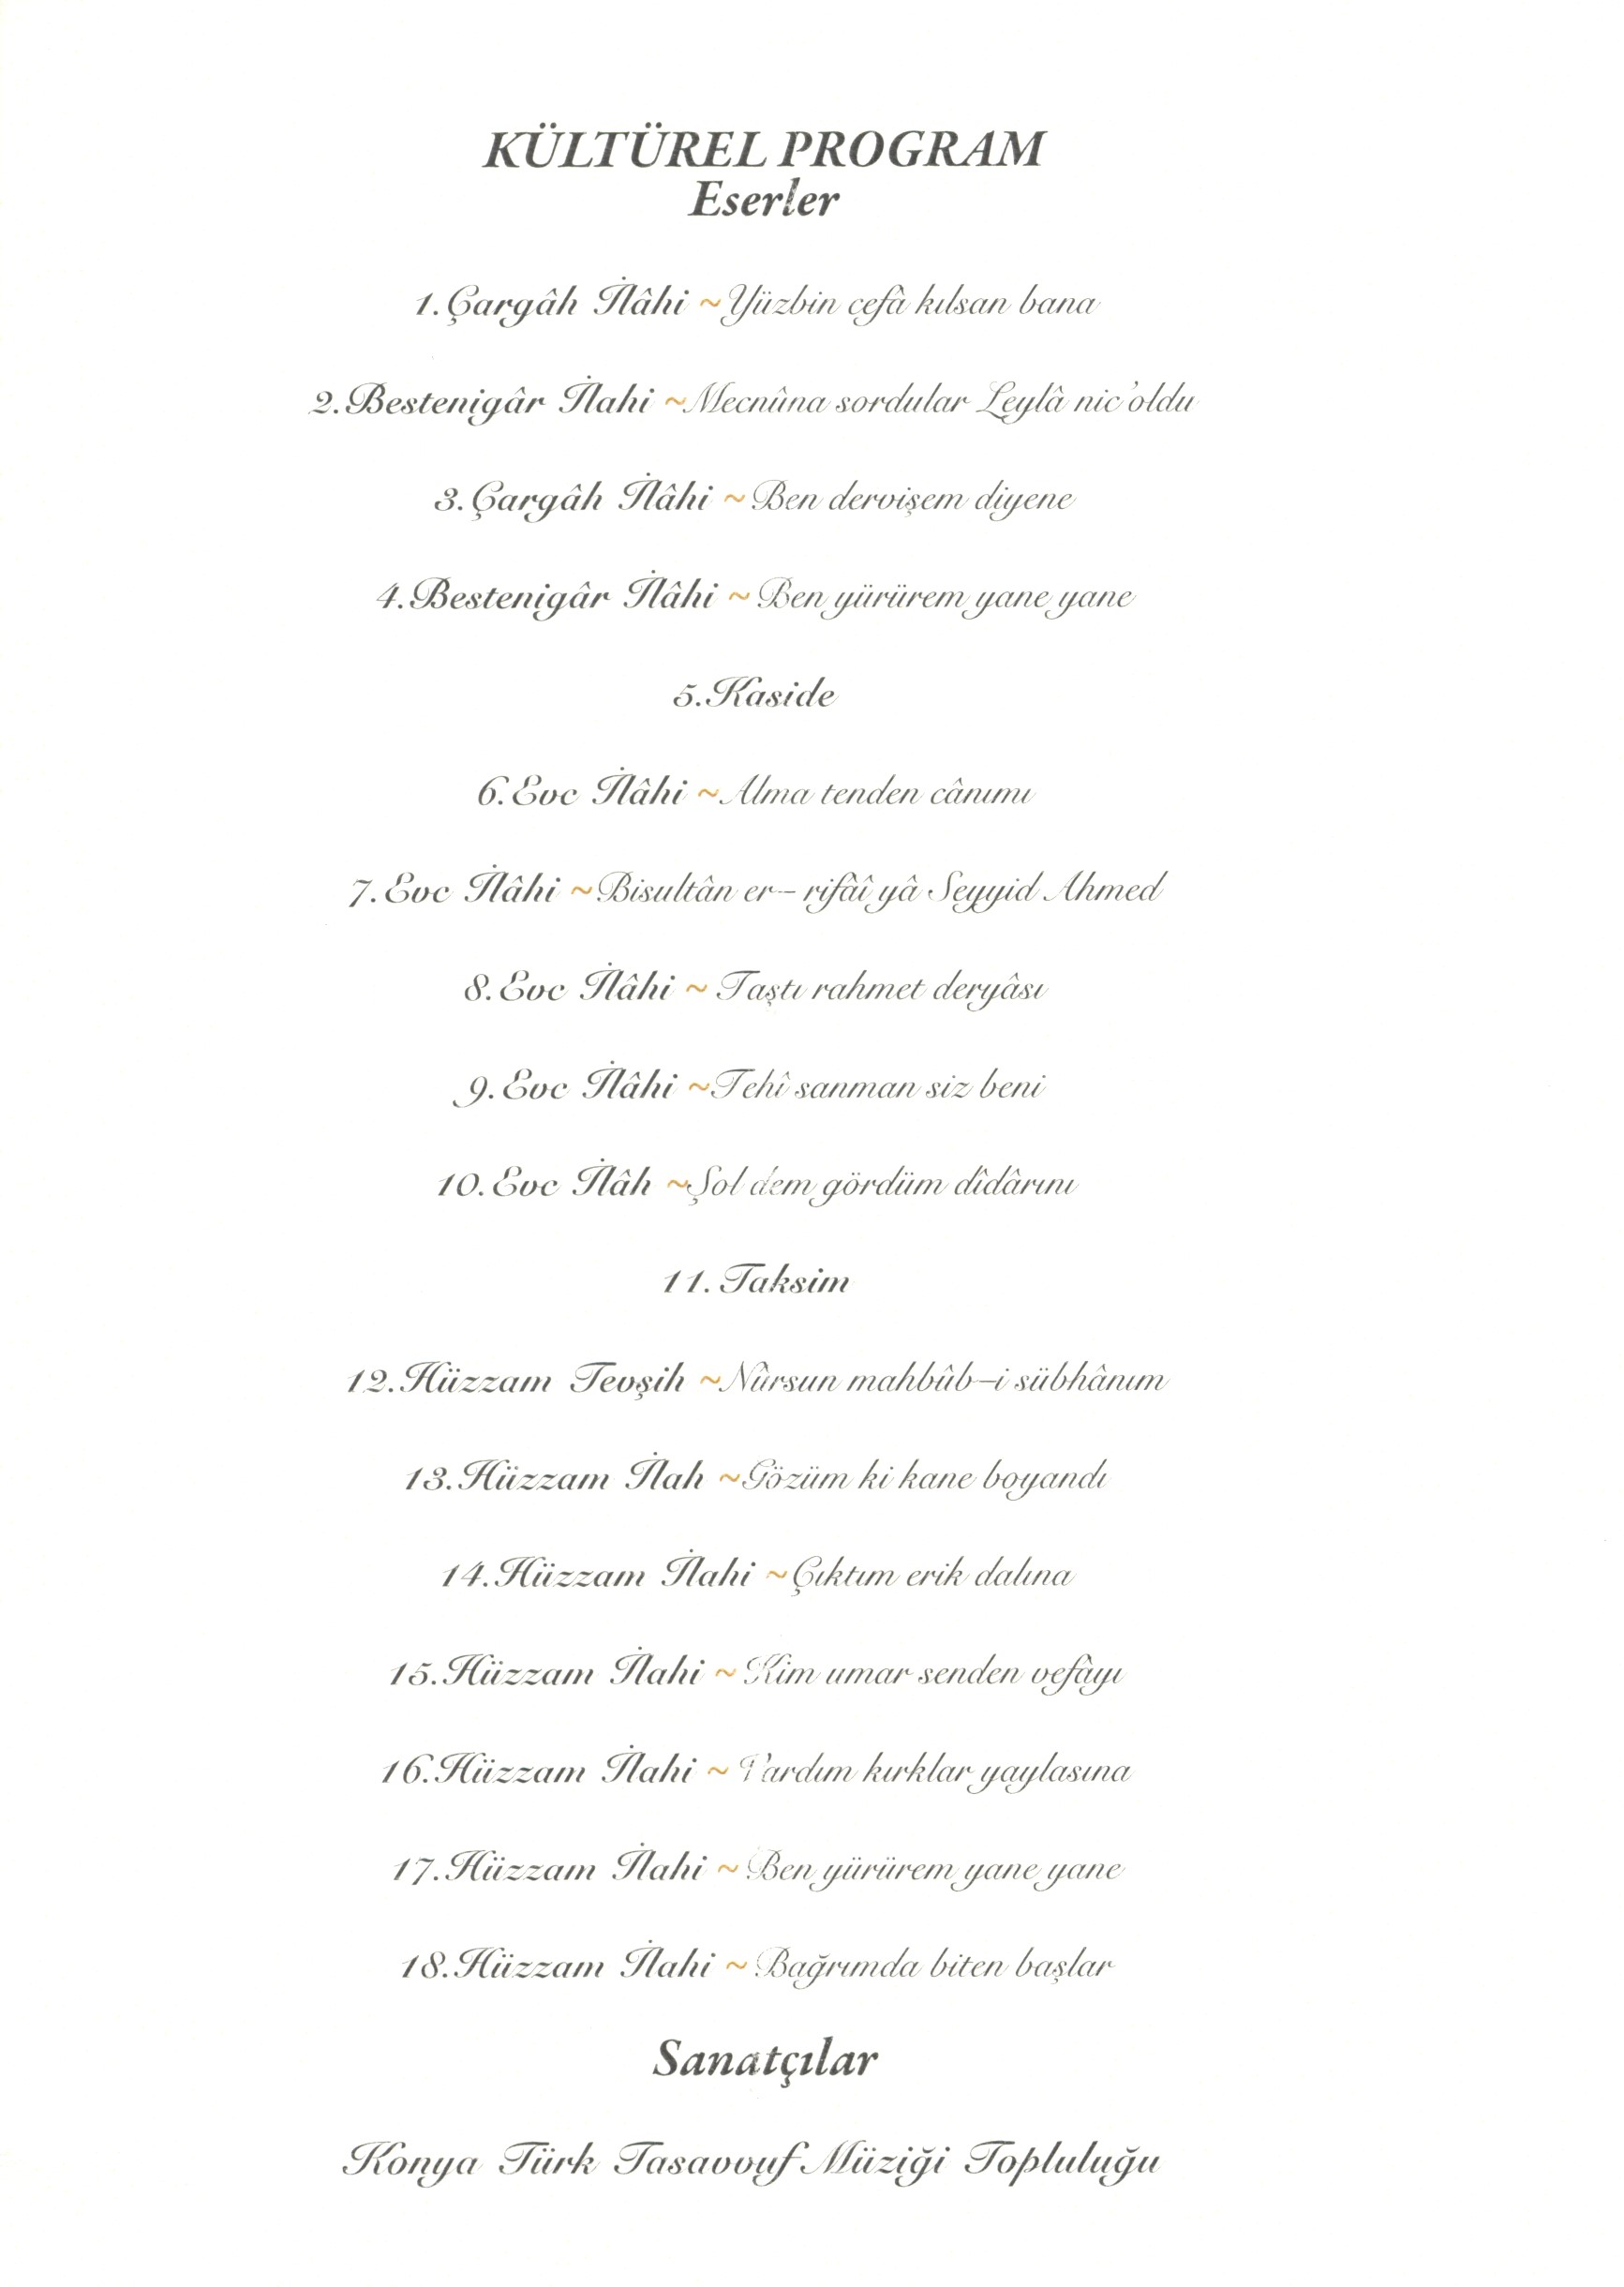 KÜLTÜREL PROGRAM
Eserler
1. Çargâh İlâhi ~ Yüzbin cefâ kılsan bana
2. Bestenigâr İlahi ~ Mecnûna sordular Leylâ nic'oldu
3. Çargâh İlâhi ~ Ben dervişem diyene
4. Bestenigâr İlâhi ~ Ben yürürem yane yane
5. Kaside
6. Evc İlâhi ~ Alma tenden cânımı
7. Evc İlâhi ~ Bisultân er- rifâî yâ Seyyid Ahmed
8. Evc İlâhi ~ Taştı rahmet deryâsı
9. Evc İlâhi ~ Tehî sanman siz beni
10. Evc İlâh ~ Şol dem gördüm dîdârını
11. Taksim
12. Hüzzam Tevşih ~ Nûrsun mahbûb-i sübhânım
13. Hüzzam İlah ~ Gözüm ki kane boyandı
14. Hüzzam İlahi ~ Çıktım erik dalına
15. Hüzzam İlahi ~ Kim umar senden vefâyı
16. Hüzzam İlahi ~ Vardım kırklar yaylasına
17. Hüzzam İlahi ~ Ben yürürem yane yane
18. Hüzzam İlahi ~ Bağrımda biten başlar
Sanatçılar
Konya Türk Tasavvuf Müziği Topluluğu